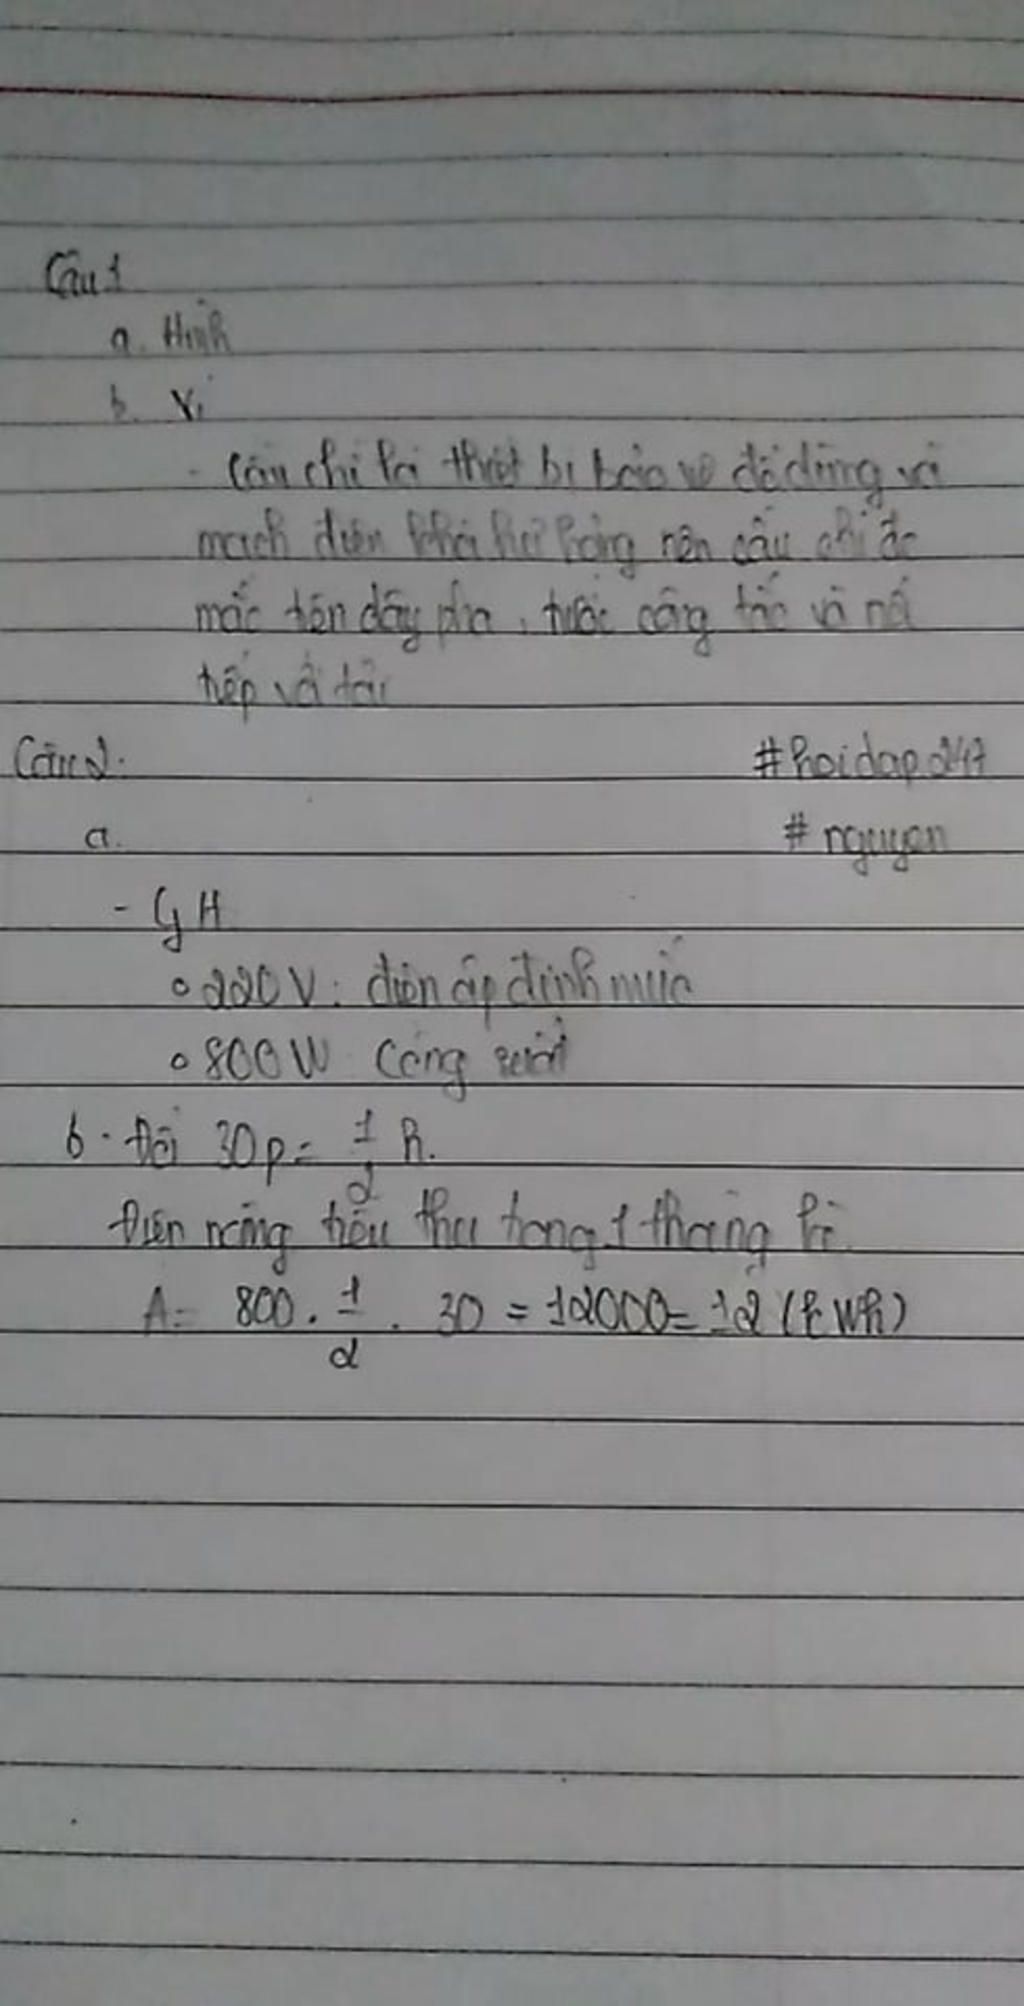 Câu 1
a. Hình
b. Vì
- Cầu chì là thiết bị bảo vệ đồ dùng và
mạch điện khỏi hư hỏng nên cầu chì đc
mắc trên dây pha, trước công tắc và nối
tiếp với tải
Câu 2.
#hoidap247
a.
#nguyen
- GH
220V: điện áp định mức
800W Công suất
b. Đổi 30p = 1/2 h.
Điện năng tiêu thụ trong 1 tháng là
A = 800 . 1/2 . 30 = 12000 = 12 (kWh)